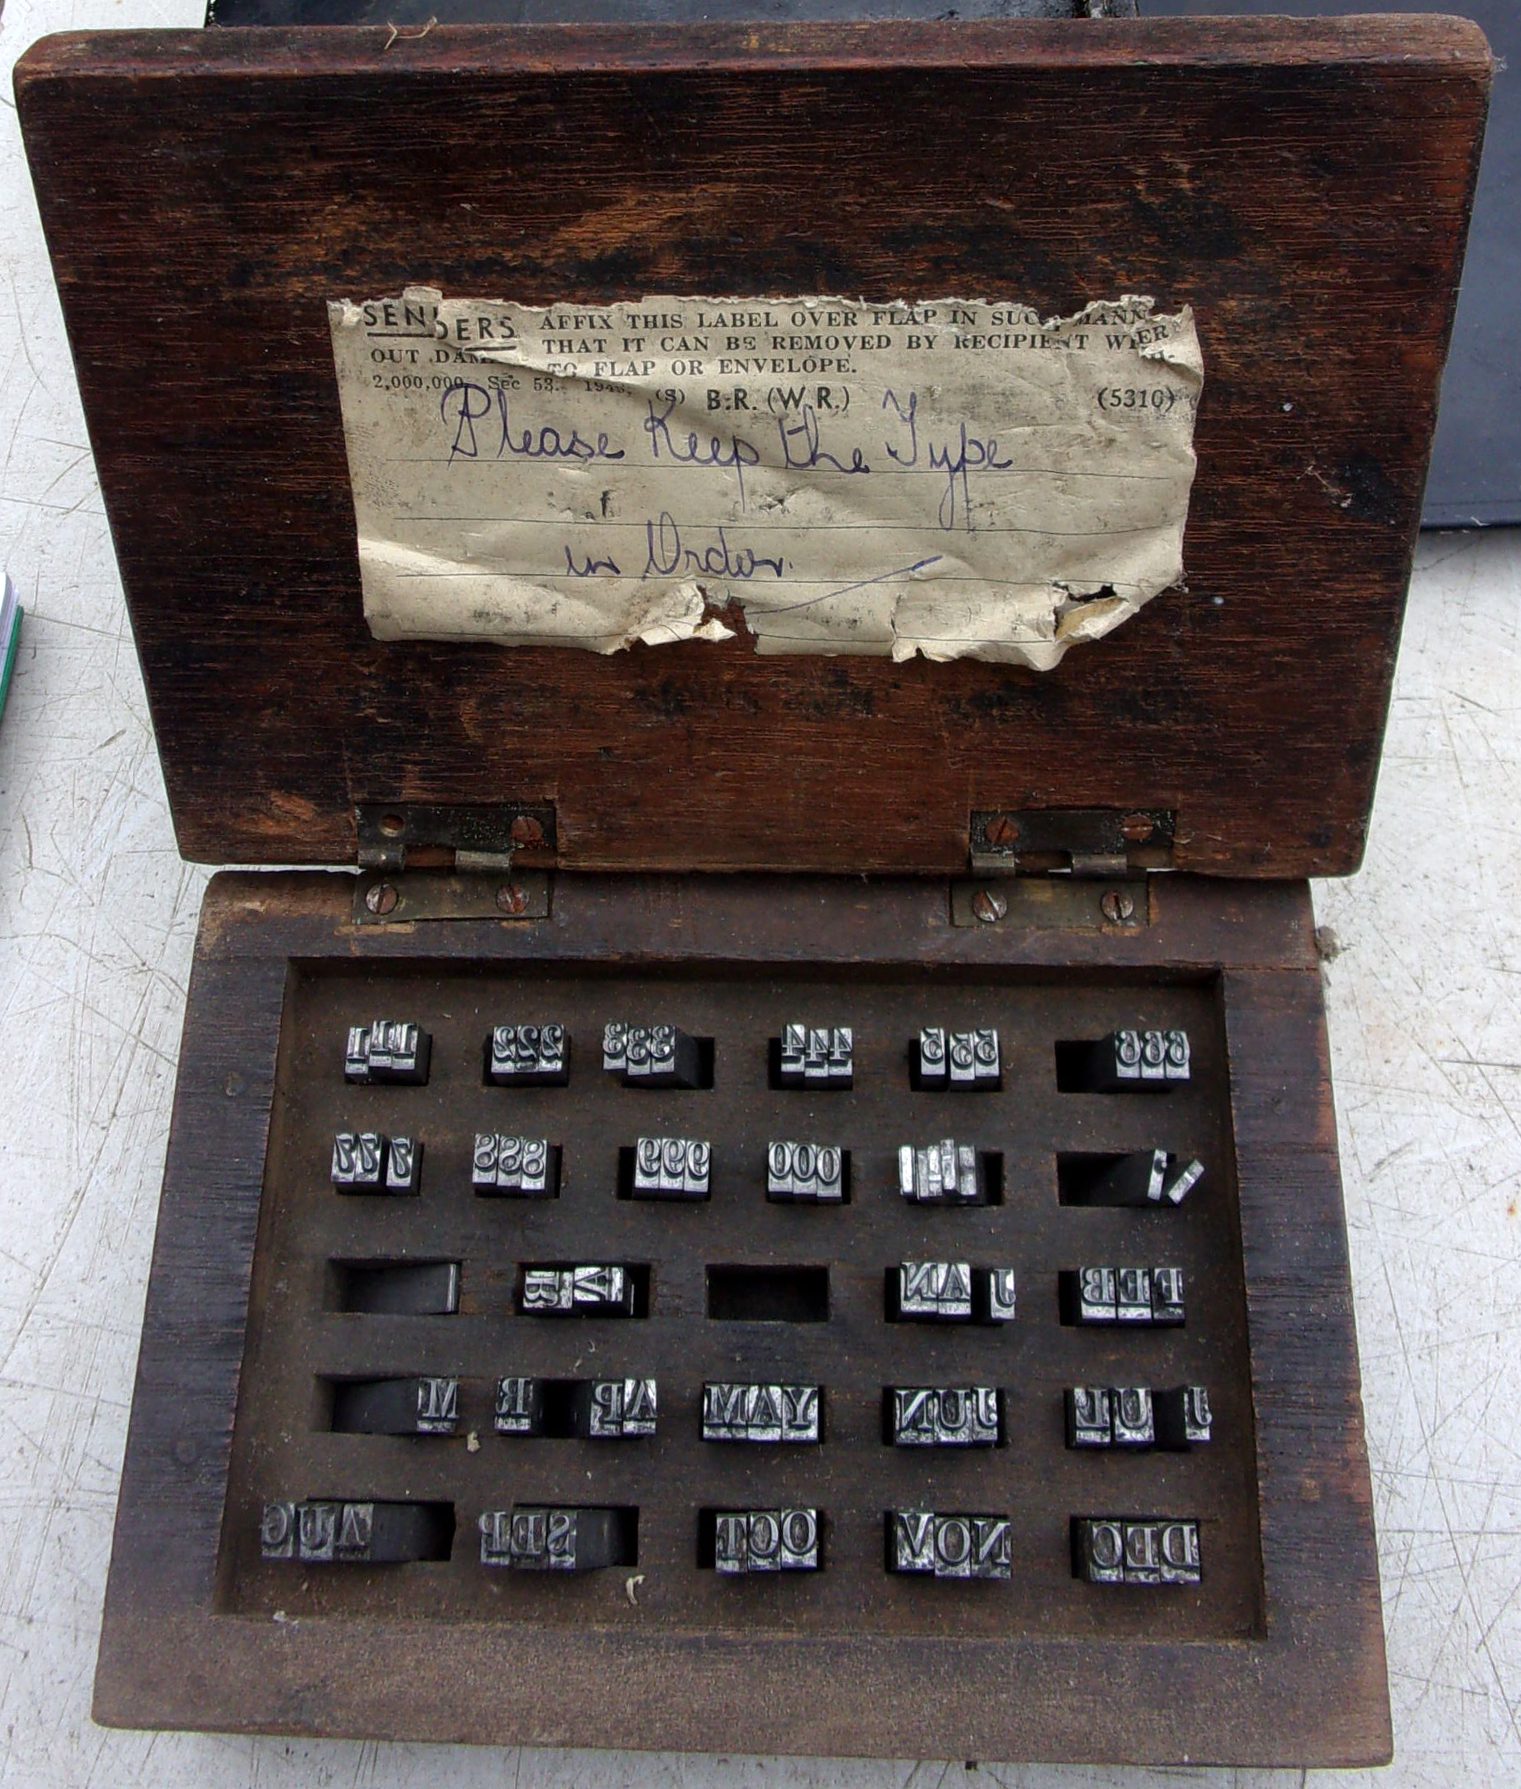 SENDERS AFFIX THIS LABEL OVER FLAP IN SUCH MANNER
THAT IT CAN BE REMOVED BY RECIPIENT WITH-
OUT TO FLAP OR ENVELOPE.
2,000,000 Sec 53. (S) B.R. (W.R.) (5310)
Please Keep the Type
in Order.
111 222 333 444 555 666
777 888 999 000
JAN FEB
M AP R MAY JUN JUL
AUG SEP OCT NOV DEC